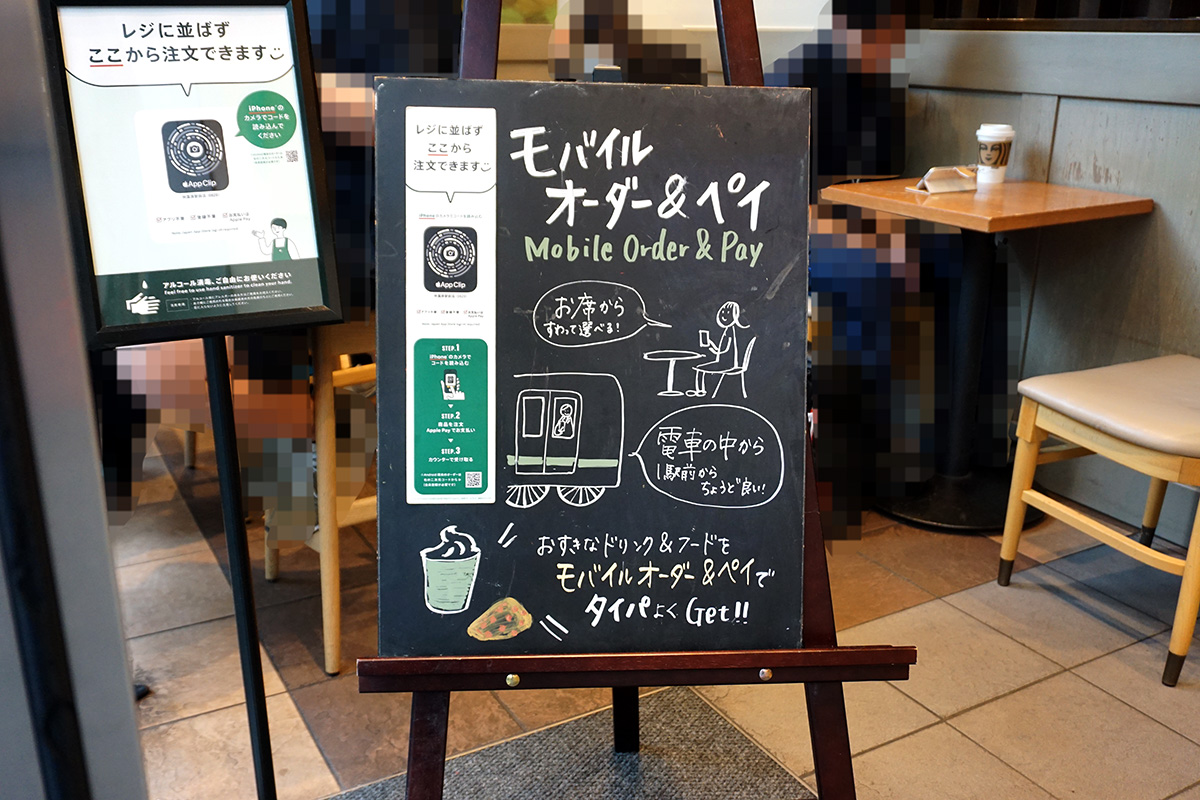 レジに並ばず
ここから注文できます
iPhoneの
カメラでコードを
読み込んで
ください
App Clip
アプリ不要
登録不要
お支払いは
Apple Pay
アルコール消毒、ご自由にお使いください
Feel free to use hand sanitizer to clean your hand.
レジに並ばず
ここから
注文できます
iPhoneのカメラでコードを読み込む
App Clip
アプリ不要
登録不要
お支払いは
Apple Pay
STEP.1
iPhoneのカメラで
コードを読み込む
STEP.2
商品を注文
Apple Payでお支払い
STEP.3
カウンターで受け取る
モバイル
オーダー&ペイ
Mobile Order & Pay
お席から
すわって選べる!
電車の中から
1駅前から
ちょうど良い!
おすきなドリンク&フードを
モバイルオーダー&ペイで
タイパよくGet!!